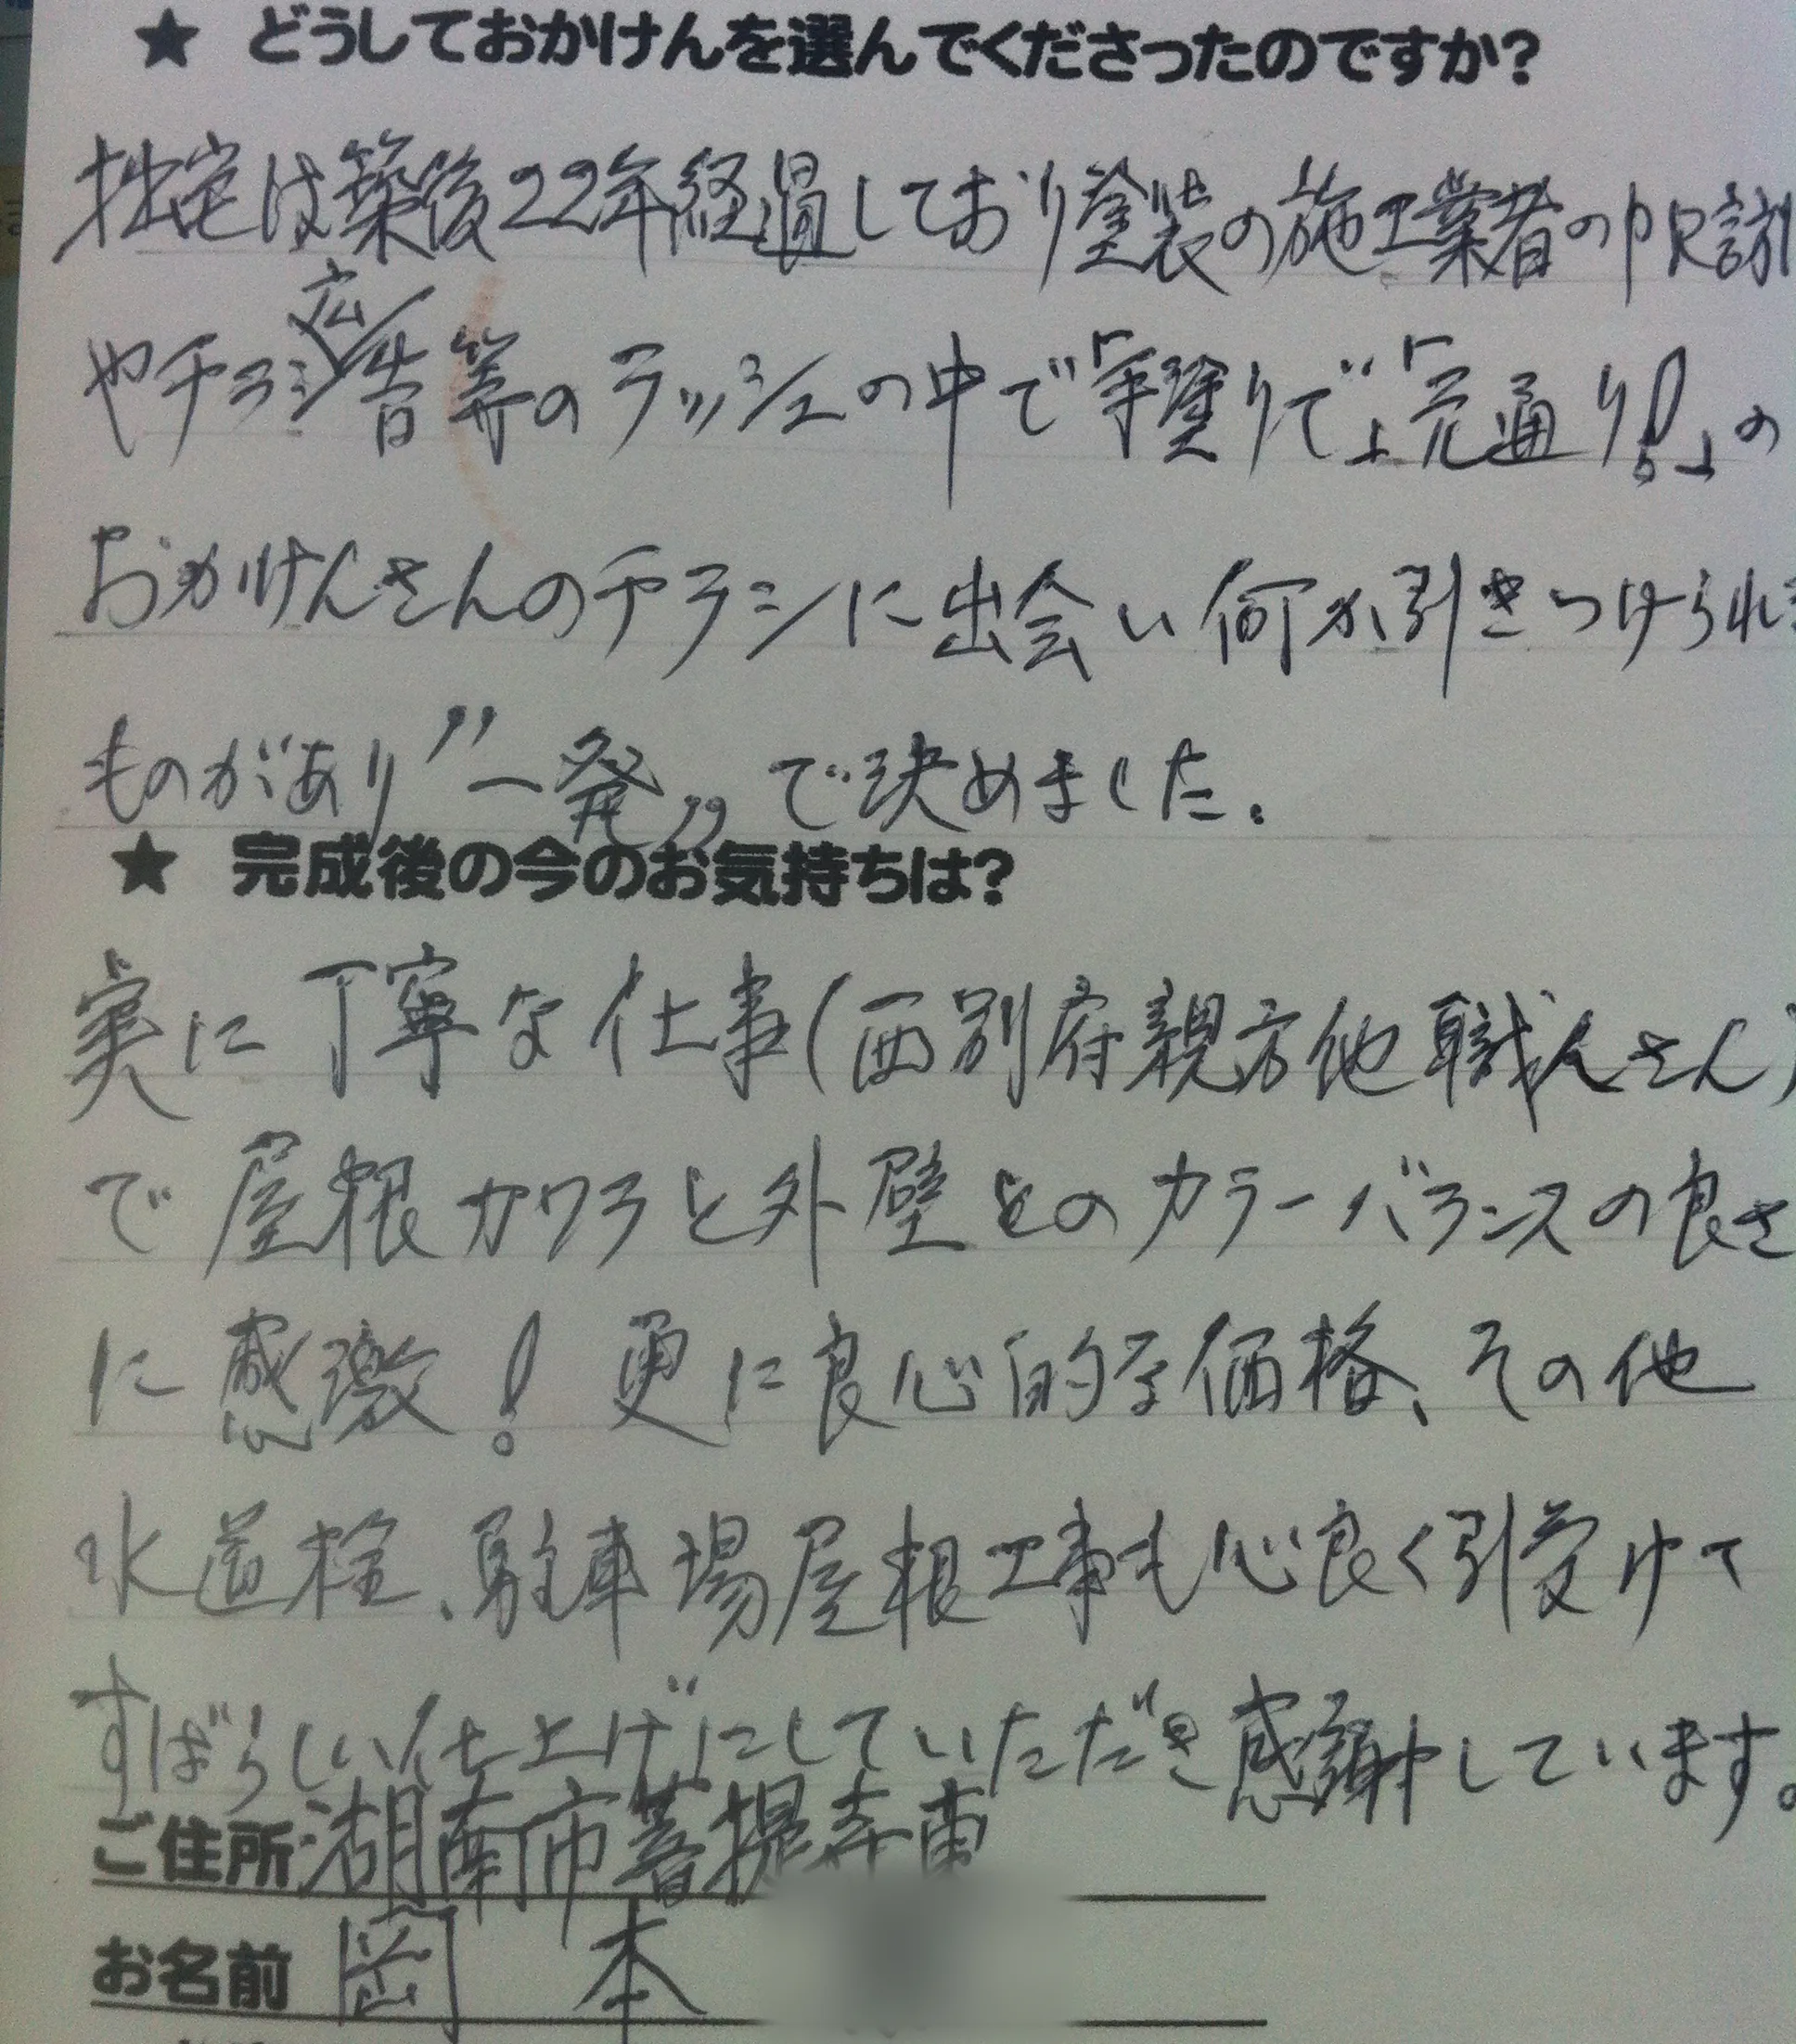 ★ どうしておかけんを選んでくださったのですか?
拙宅は築後22年経過しており塗装の施工業者の
やチラシ広告等のラッシュの中で「手塗りで」「完通り!」の
おかけんさんのチラシに出会い何か引きつけられる
ものがあり"一発"で決めました.
★ 完成後の今のお気持ちは?
実に丁寧な仕事(西別府親方他職人さん)
で屋根カワラと外壁とのカラーバランスの良さ
に感激! 更に良心的な価格、その他
水道栓、駐車場屋根工事も心良く引受けて
すばらしい仕上げにしていただき感謝しています。
ご住所 湖南市菩提寺東
お名前 岡本